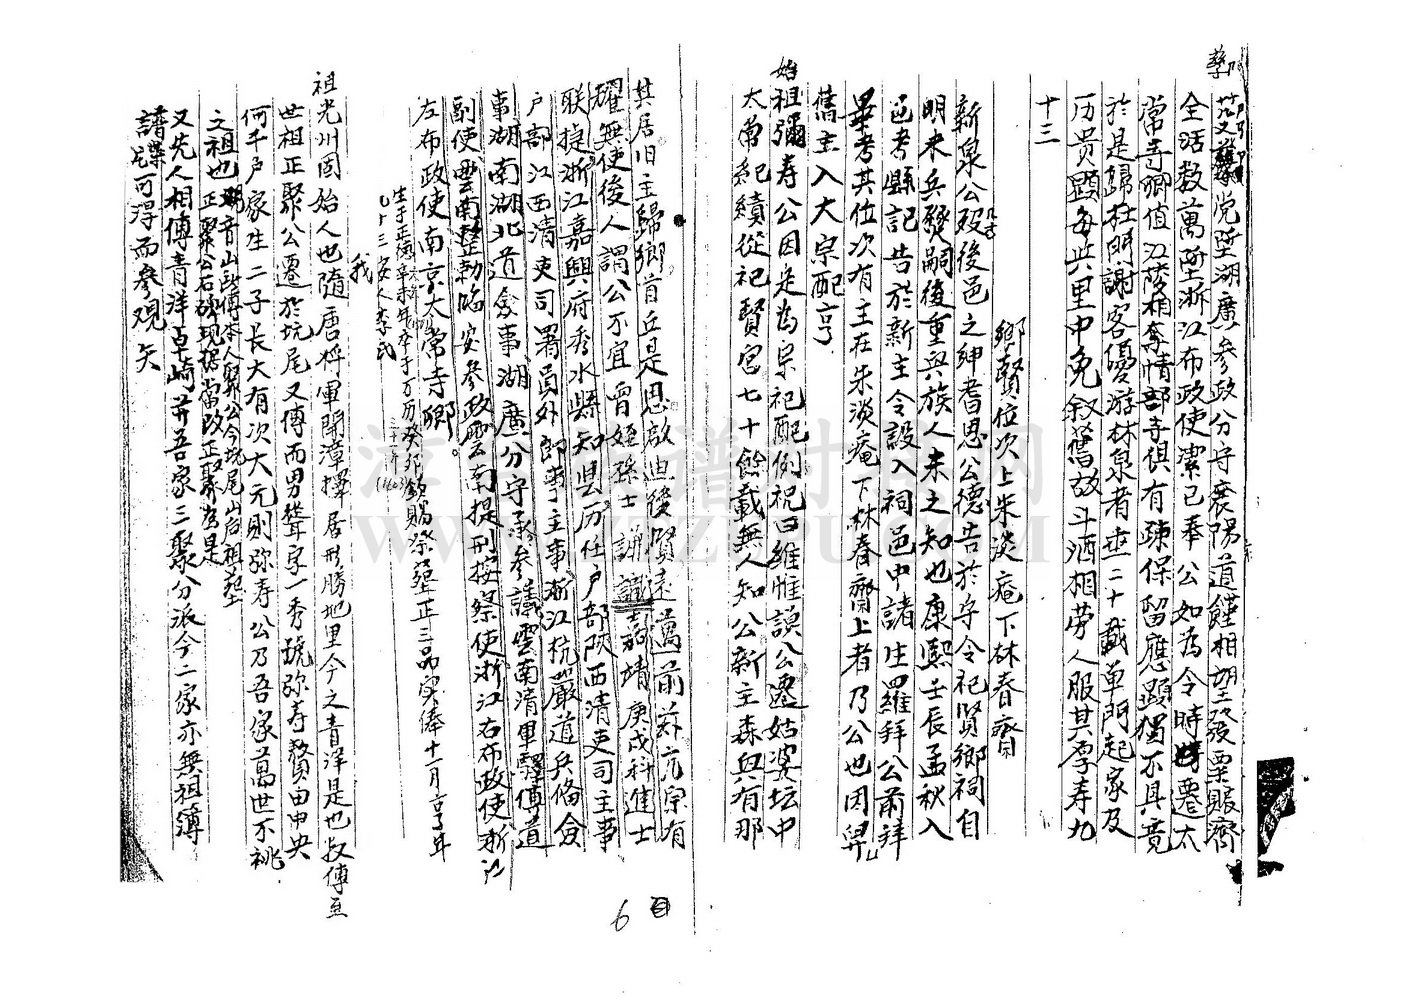 鄭
黨陞湖廣參政分守襄陽道饉相望發粟賑濟
全活数萬陞浙江布政使潔已奉公如為令時遷太
常寺卿值江陵相奪情部寺俱有疎保留應顯獨不具竟
於是歸杜門謝客優游林泉者垂二十載单門起家及
历贵顕每與里中免叙舊故斗酒相勞人服其厚寿九
十三
鄉賢位次上朱淡庵下林春齋
新泉公殁後邑之紳耆思公德告於守令祀賢鄉祠自
明末兵發嗣後重與族人未之知也康熙壬辰孟秋入
邑考縣記告於新主令設入祠邑中諸生羅拜公前拜
畢考其位次有主在朱淡庵下林春齋上者乃公也因舁
舊主入大宗配亨
始祖彌寿公因定為宗祀配例祝曰維惟謨公遷姑婆坛中
太常紀續從祀賢宫七十餘載無人知公新主森與有那
其居旧主歸鄉首丘是思啟迪後賢遠萬前英亢宗有
耀無使後人謂公不宜曾姪孫士謙識嘉靖庚戍科進士
联捷浙江嘉興府秀水縣知县历任户部陝西清吏司主事
户部江西清吏司署員外郎事主事浙江杭嚴道兵俻僉
事湖南湖北道僉事湖廣分守承参議雲南清軍驛傅道
副使雲南整勅临安参政雲南提刑按察使浙江右布政使浙江
左布政使南京太常寺卿。
生于正德辛未年卒于万历癸卯鈫賜祭塟正三品实俸十一月亨年
三十一年(1603)
九十三安人李氏
我
祖光州固始人也隨唐将軍開漳擇居形勝地里今之青洋是也叔傅至
世祖正聚公遷於坑尾又傅而男聳字一秀琥弥寿贅由中央
何千户家生二子長大有次大元則弥寿公乃吾家萬世不祧
之祖也
正聚公石碑现摆當政正聚為是
又先人相傅青洋卓崎并吾家三聚分派今二家亦無祖簿
譜牒可得而參观矢
6